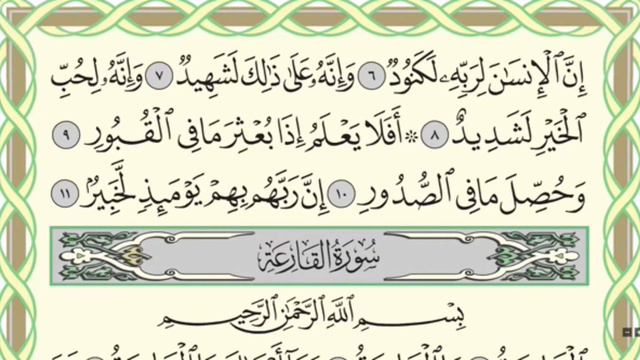 إِنَّ ٱلْإِنسَٰنَ لِرَبِّهِۦ لَكَنُودٌ ٦ وَإِنَّهُۥ عَلَىٰ ذَٰلِكَ لَشَهِيدٌ ٧ وَإِنَّهُۥ لِحُبِّ
ٱلْخَيْرِ لَشَدِيدٌ ٨ ۞ أَفَلَا يَعْلَمُ إِذَا بُعْثِرَ مَا فِى ٱلْقُبُورِ ٩
وَحُصِّلَ مَا فِى ٱلصُّدُورِ ١٠ إِنَّ رَبَّهُم بِهِمْ يَوْمَئِذٍ لَّخَبِيرٌۢ ١١
سُورَةُ القَارِعَة
بِسْمِ ٱللَّهِ ٱلرَّحْمَٰنِ ٱلرَّحِيمِ